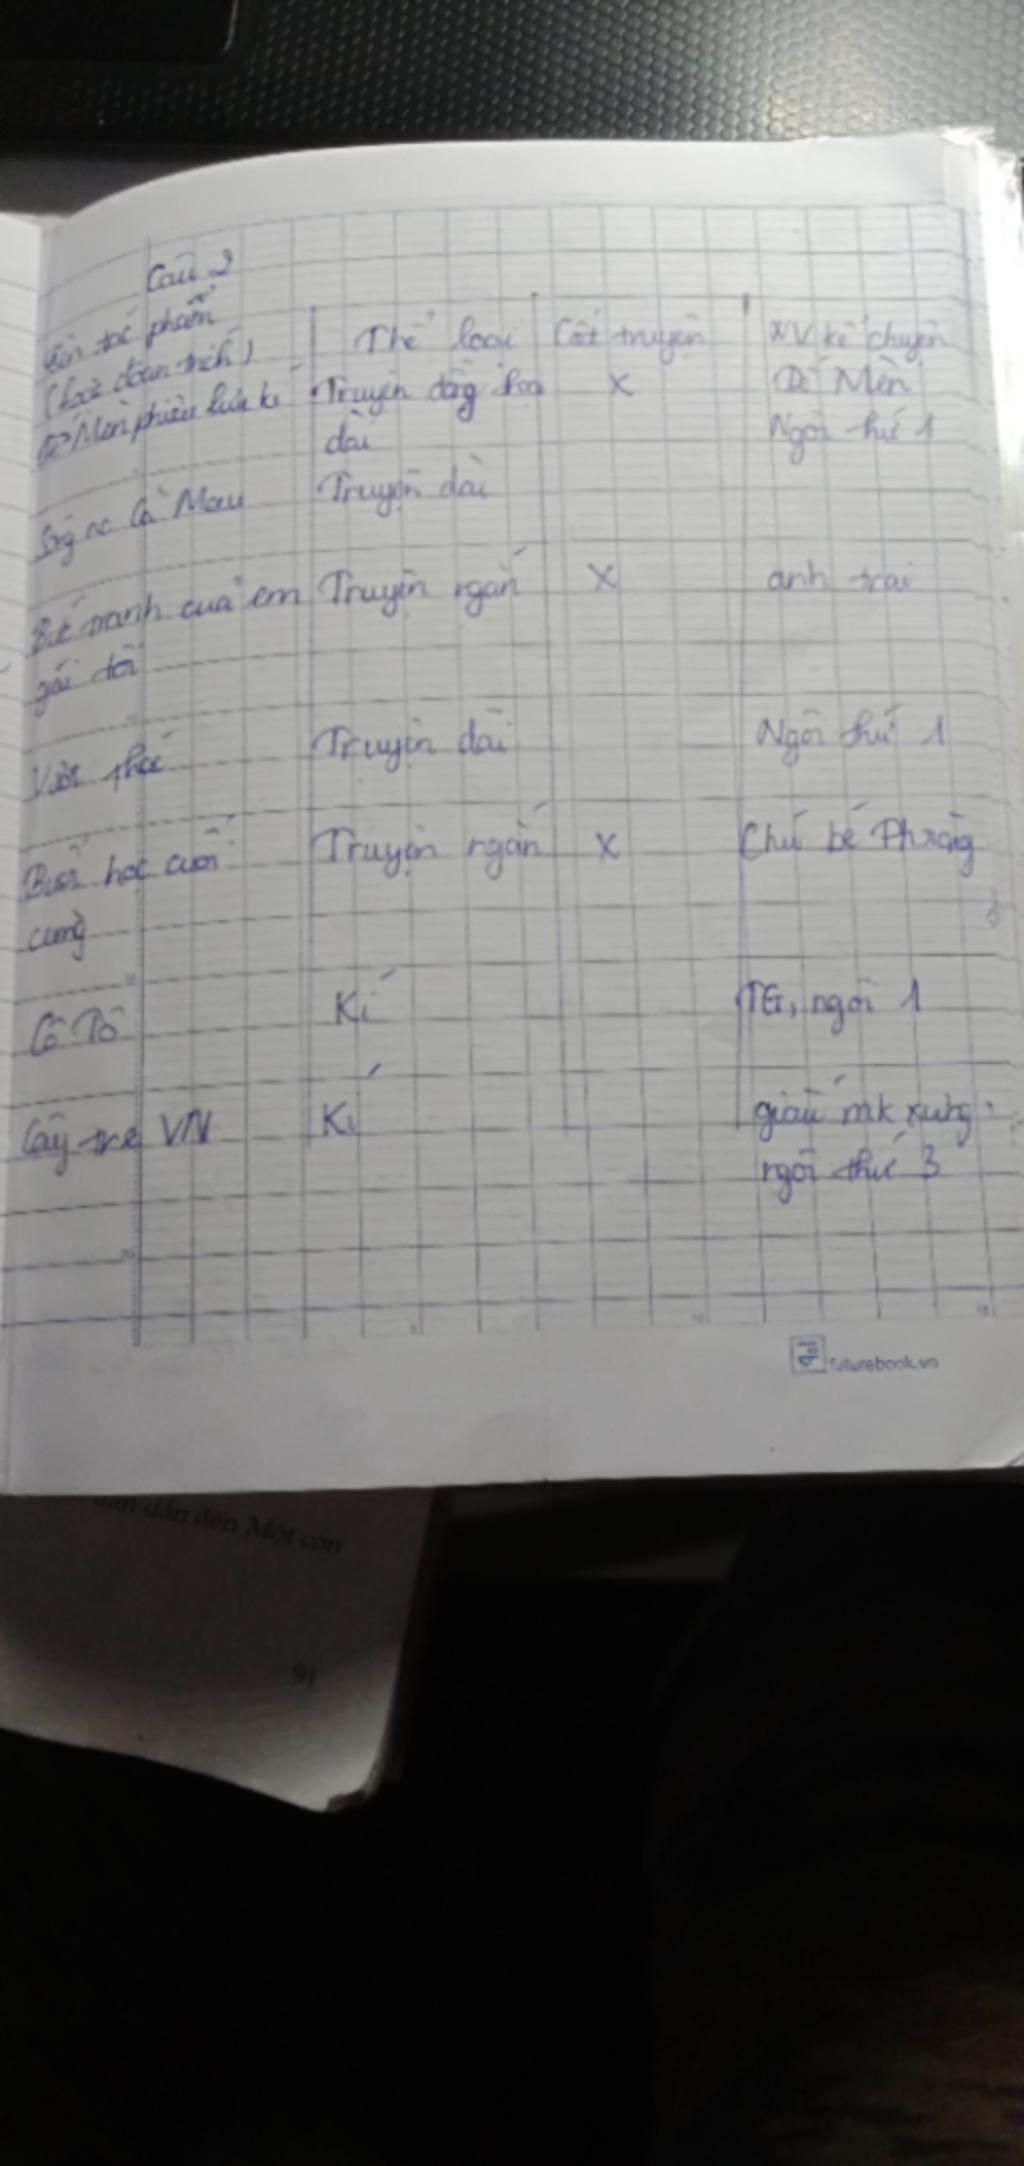 Câu 2
Tên tác phẩm
(hoặc đoạn trích)
Thể loại
Cốt truyện
NV kể chuyện
Dế Mèn phiêu lưu kí
Truyện đồng thoại
dài
X
Dế Mèn
Ngôi thứ 1
Sông nc Cà Mau
Truyện dài
Bức tranh của em
gái tôi
Truyện ngắn
X
anh trai
Vượt thác
Truyện dài
Ngôi thứ 1
Buổi học cuối
cùng
Truyện ngắn
X
Chú bé Phrăng
Cô Tô
Kí
TG, ngôi 1
Cây tre VN
Kí
giấu mk xưng
ngôi thứ 3
futurebook.vn
dần dần đến Một còn
91